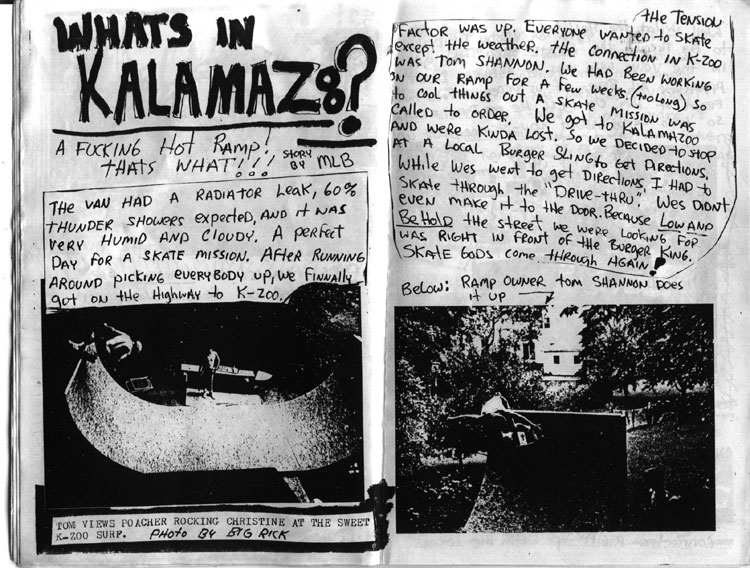 WHATS IN
KALAMAZ8?
A FUCKING HOT RAMP!
THATS WHAT!!!
STORY
BY MLB
THE VAN HAD A RADIATOR LEAK, 60%
THUNDER SHOWERS EXPECTED, AND IT WAS
VERY HUMID AND CLOUDY. A PERFECT
DAY FOR A SKATE MISSION. AFTER RUNNING
AROUND PICKING EVERYBODY UP, WE FINNALY
GOT ON THE HIGHWAY TO K-ZOO.
TOM VIEWS POACHER ROCKING CHRISTINE AT THE SWEET
K-ZOO SURF. PHOTO BY BIG RICK
THE TENSION
FACTOR WAS UP. EVERYONE WANTED TO SKATE
EXCEPT THE WEATHER. THE CONNECTION IN K-ZOO
WAS TOM SHANNON. WE HAD BEEN WORKING
ON OUR RAMP FOR A FEW WEEKS. (TOO LONG) SO
TO COOL THINGS OUT A SKATE MISSION WAS
CALLED TO ORDER. WE GOT TO KALAMAZOO
AND WERE KINDA LOST. SO WE DECIDED TO STOP
AT A LOCAL BURGER SLING TO GET DIRECTIONS.
WHILE WES WENT TO GET DIRECTIONS, I HAD TO
SKATE THROUGH THE "DRIVE-THRU". WES DIDN'T
EVEN MAKE IT TO THE DOOR. BECAUSE LOW AND
BEHOLD THE STREET WE WERE LOOKING FOR
WAS RIGHT IN FRONT OF THE BURGER KING.
SKATE GODS COME THROUGH AGAIN!
BELOW: RAMP OWNER TOM SHANNON DOES
IT UP